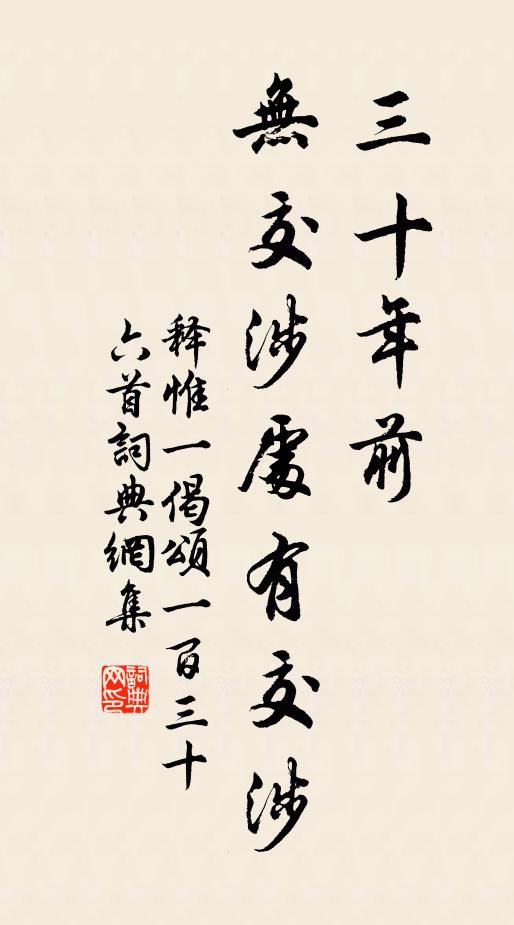 三十年前
無交涉處有交涉
释惟一偈頌一百三十
六首詞典網集
詞典
网印